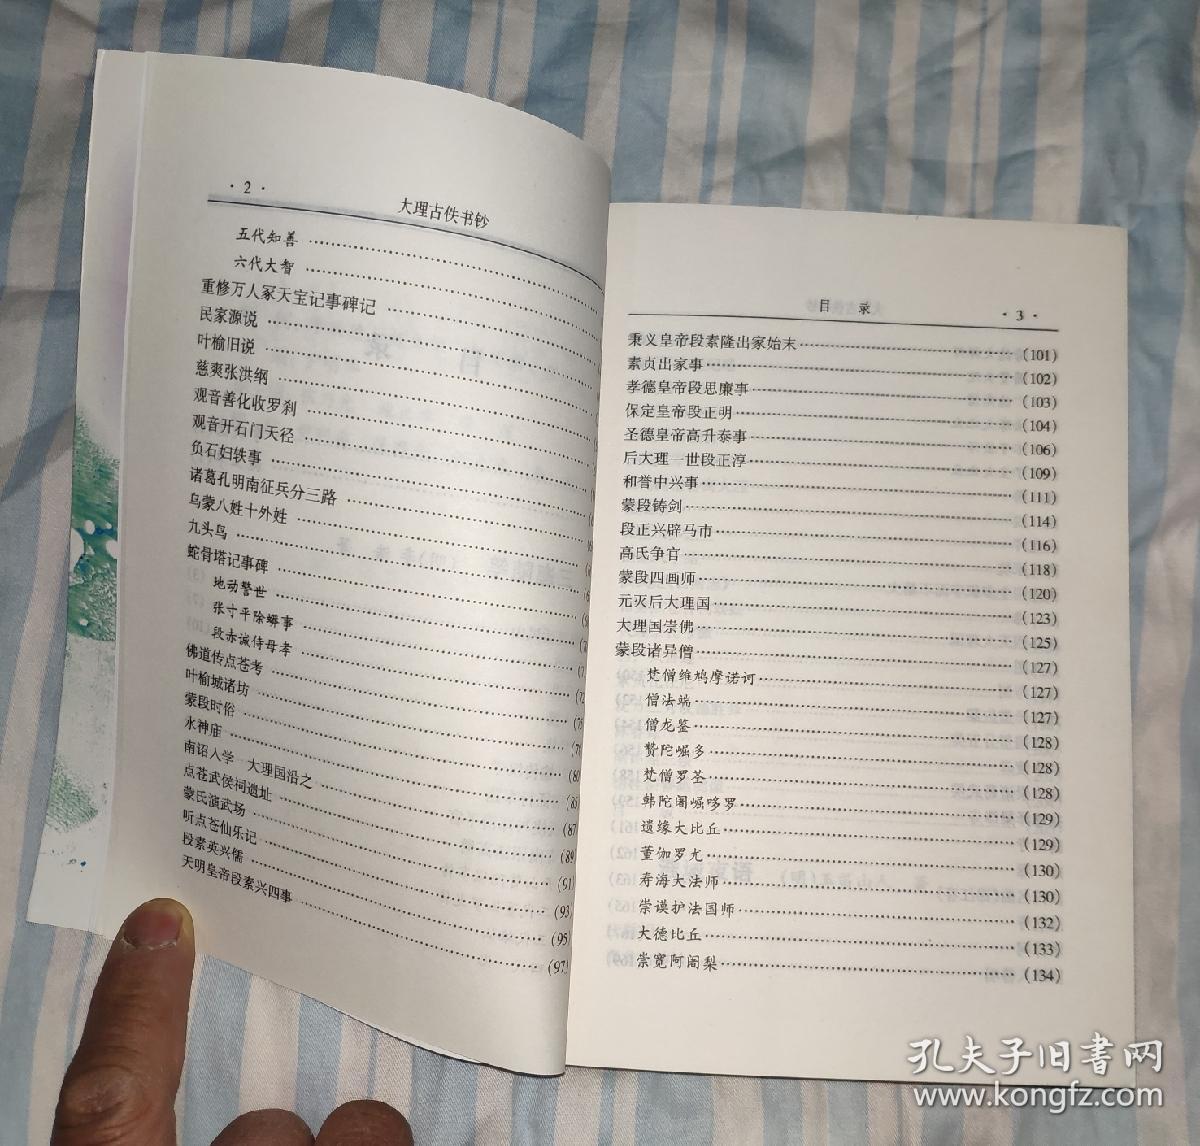 · 2 ·
大理古佚书钞
五代知善
六代大智
重修万人冢天宝记事碑记
民家源说
叶榆旧说
慈爽张洪纲
观音善化收罗刹
观音开石门天径
负石妇轶事
诸葛孔明南征兵分三路
乌蒙八姓十外姓
九头鸟
蛇骨塔记事碑
地动警世
张寸平除蟒事
段赤诚侍母孝
佛道传点苍考
叶榆城诸坊
蒙段时俗
水神庙
南诏入学 大理国沿之
点苍武侯祠遗址 (87
蒙氏演武场 (89
听点苍仙乐记 (91
段素英兴儒 (93)
天明皇帝段素兴四事 (95
(97)
目 录
· 3 ·
秉义皇帝段素隆出家始末 (101)
素贞出家事 (102)
孝德皇帝段思廉事 (103)
保定皇帝段正明 (104)
圣德皇帝高升泰事 (106)
后大理一世段正淳 (109)
和誉中兴事 (111)
蒙段铸剑 (114)
段正兴辟马市 (116)
高氏争官 (118)
蒙段四画师 (120)
元灭后大理国 (123)
大理国崇佛 (125)
蒙段诸异僧 (127)
梵僧维鸠摩诺诃 (127)
僧法端 (127)
僧龙鉴 (128)
赞陀崛多 (128)
梵僧罗荃 (128)
韩陀阇崛哆罗 (129)
遗缘大比丘 (129)
董伽罗尤 (130)
寿海大法师 (130)
崇谟护法国师 (132)
大德比丘 (133)
崇宽阿阇梨 (134)
孔夫子旧书网
www.kongfz.com